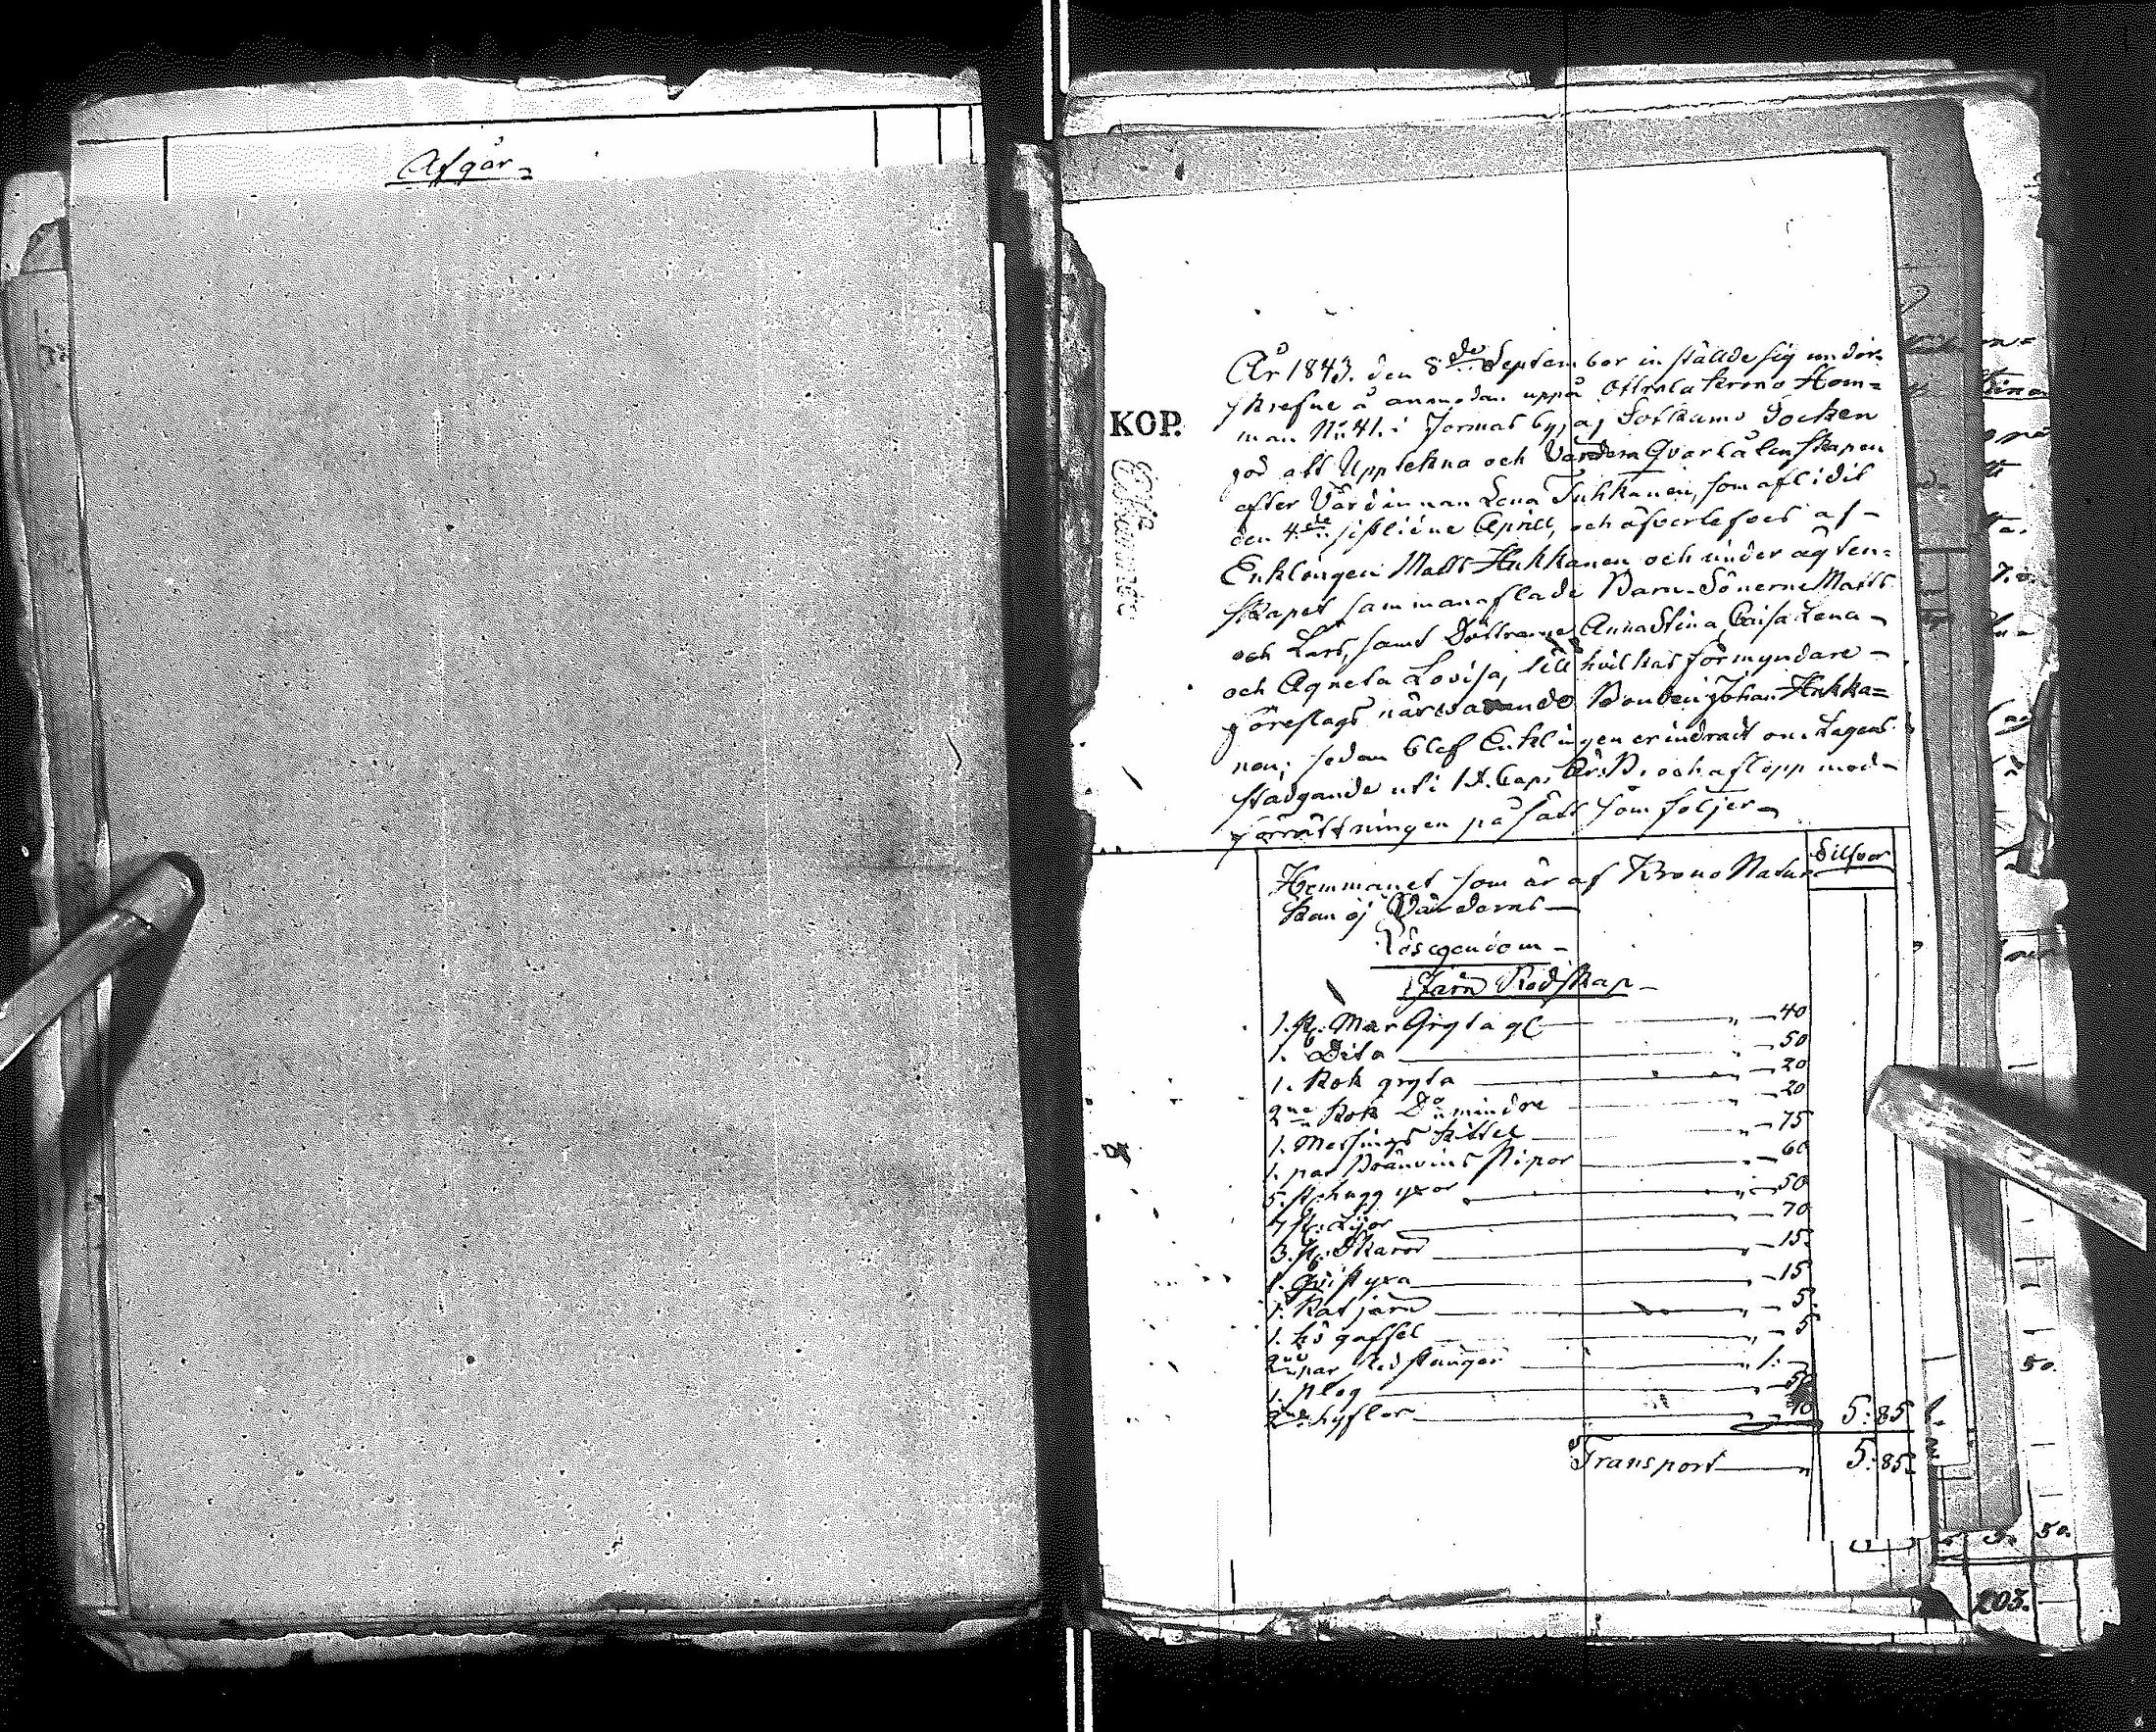 Afgår
KOP.
År 1843. den 8de September instälde sig under-
skrefne å anmodan uppå Ollila Krono Hem=
man No 41. i Jormas by, af Sotkamo Socken
god att Upptekna och Värdera Qvarlåtenskapen
efter Värdinnan Lena Tuhkanen, som aflidit
den 4de sistlidne April, och öfverlefves af
Enklingen Matts Hukkanen och under ägten=
skapet sammanaflade Barn Sönerne Matts
och Lars, samt Döttrarne Anna Stina, Caisa Lena
och Agneta Lovisa, till hvilkas förmyndare
föreslags närvarande Bonden Johan Hukka=
nen; sedan blef Enklingen erindrad om Lagens
stadgande uti Cap. Är: B. och aflopp med
förrättningen på sätt som följer
Silfver
Hemmanet som är af Krono Natur
kan ej Värderas
Lösegendom
Järn Redskap
1. st. Mar Gryta gl " 40
1. Dito " 50
1. Kok gryta " 20
2ne Kok Do mindre " 20
1. Messings kittel " 75
1. par Bränvins Pipor " 60
5. st. hugg yxor " 50
7 st. Lijor " 70
3. st. Skäror " 15
1. Qvist yxa " 15
1. Rakjärn " 5
1. hö gaffel " 5
2ne par stänger " 1:
1. Plog " 50
2ne hyflor " 10 5:85
Transport " 5:85
50.
50.
203.